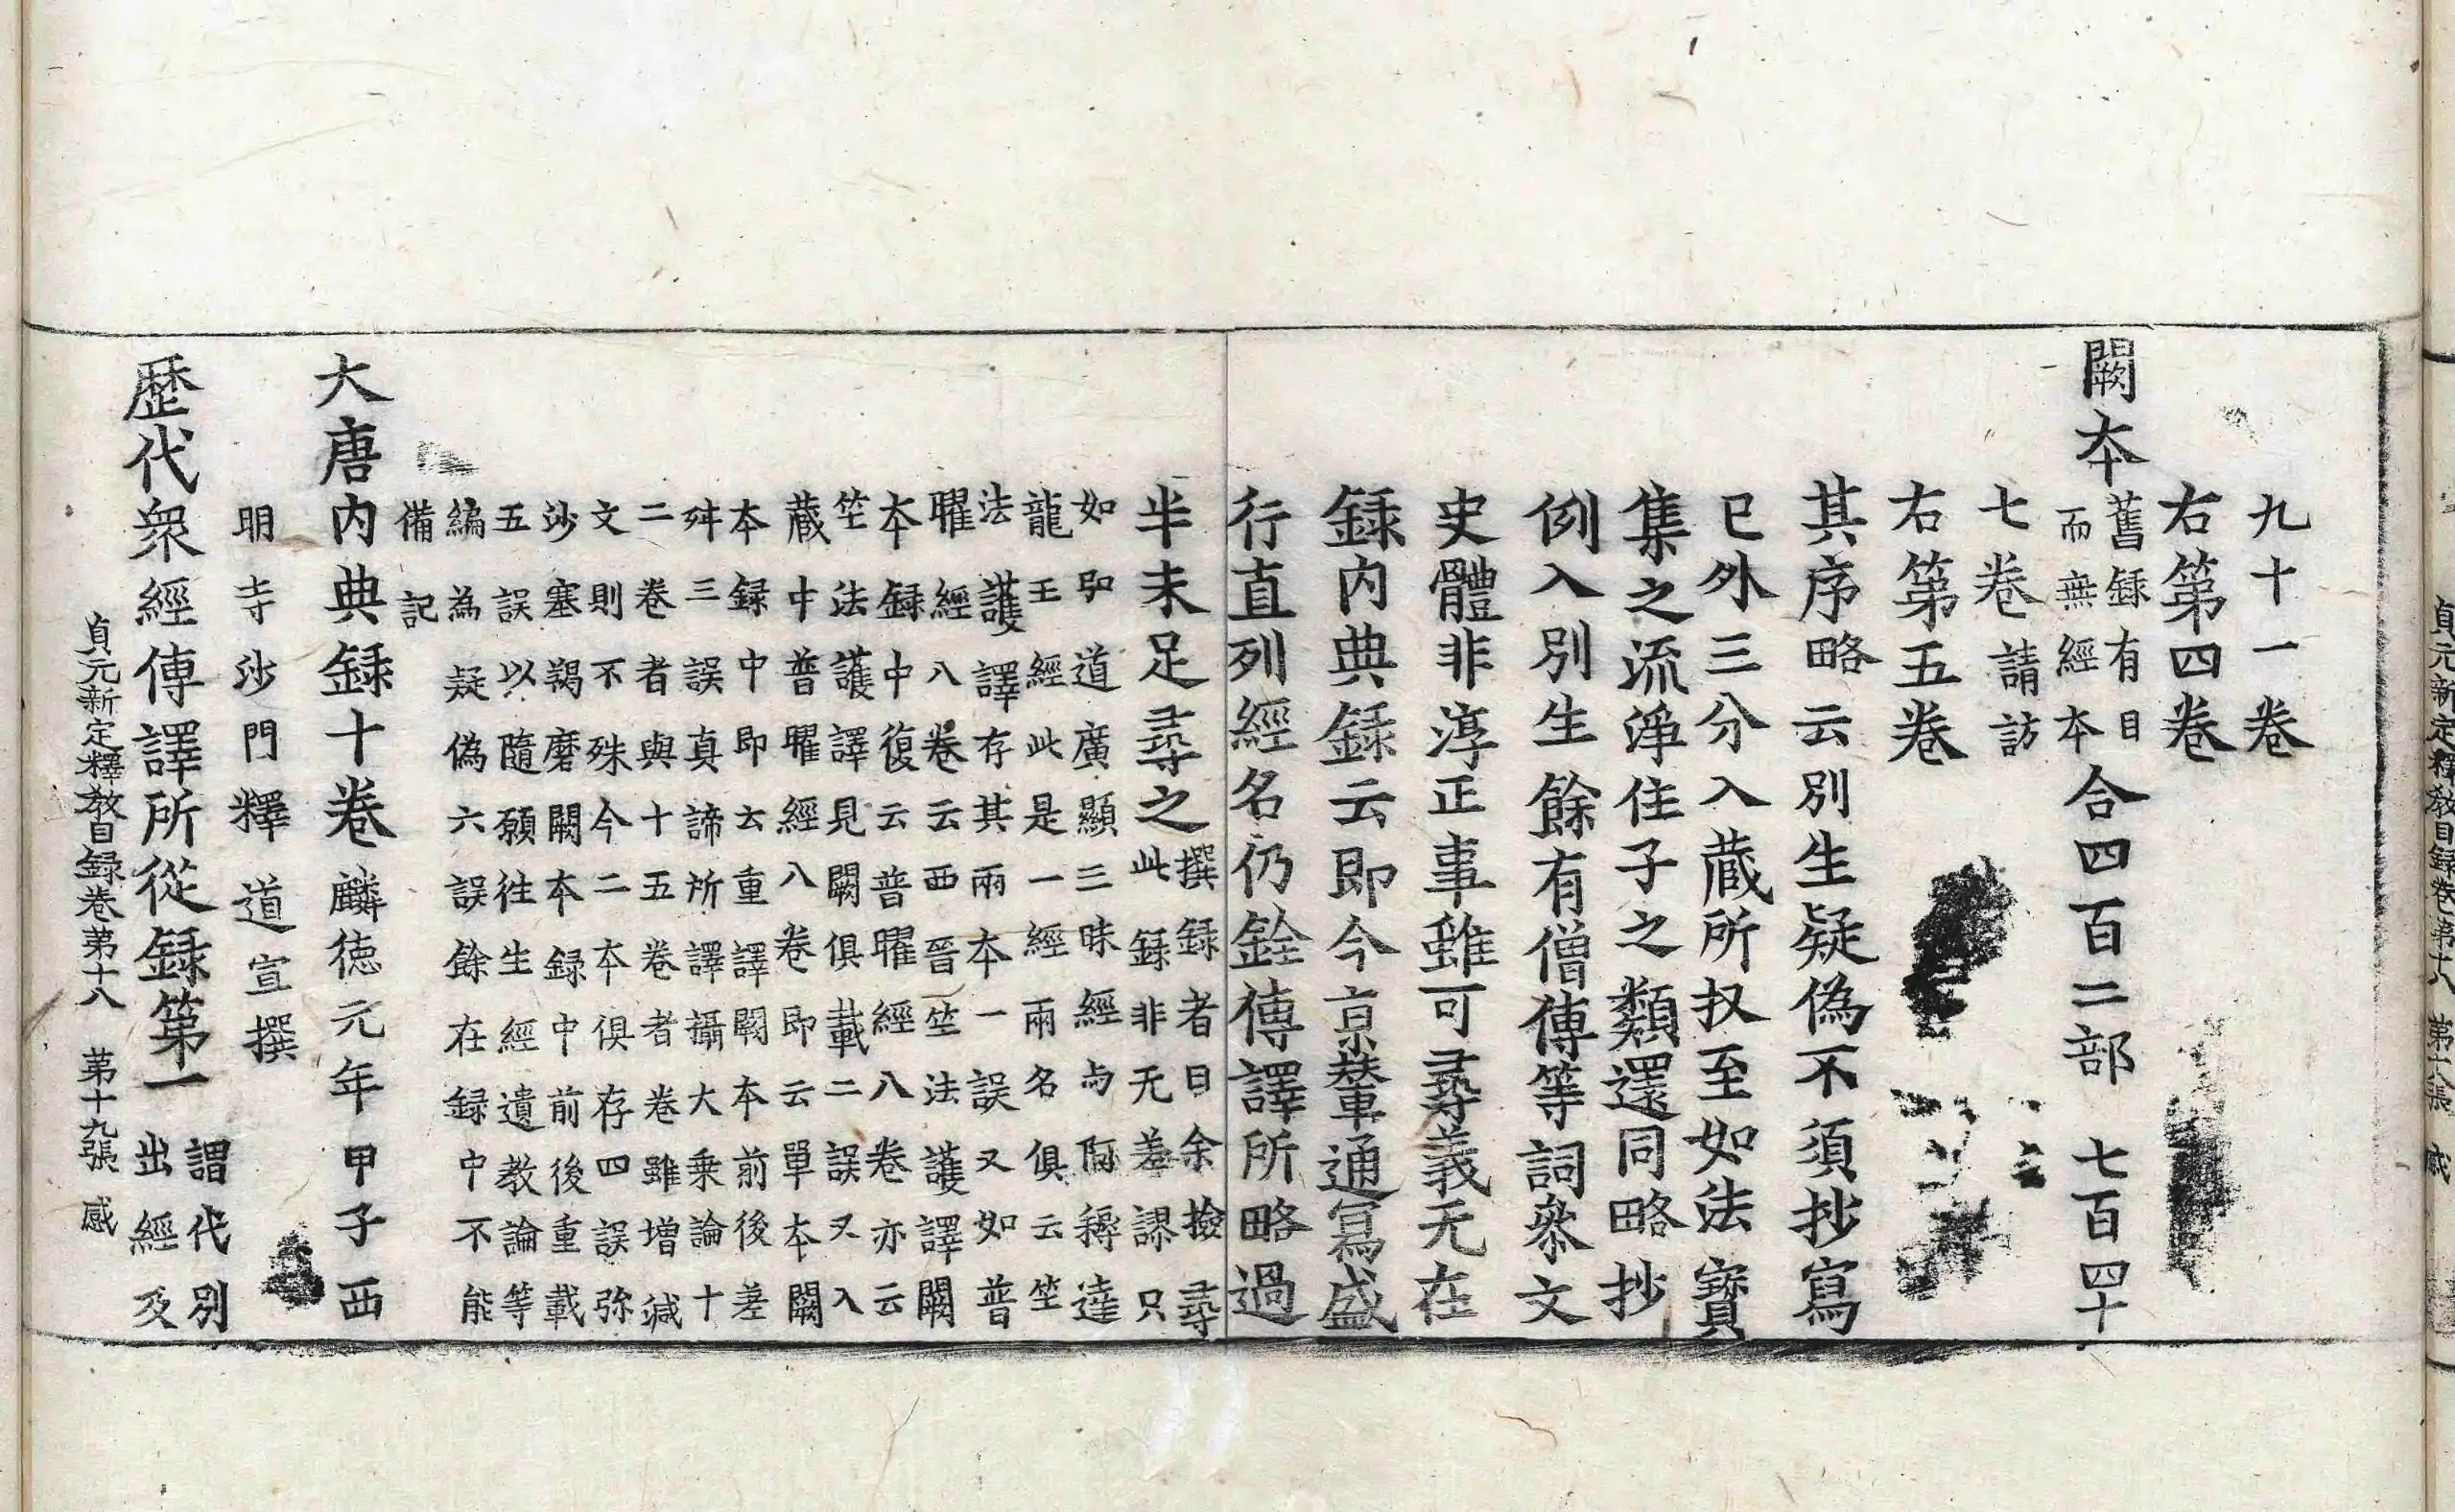 九十一卷
右第四卷
闕本舊録有目而無經本合四百二部 七百四十
七卷請訪
右第五卷
其序略云別生疑偽不須抄寫
已外三分入蔵所収至如法寶
集之流淨住子之類還同略抄
例入別生餘有僧傳等詞叅文
史體非淳正事雖可尋義无在
録内典録云即今京輦通寫盛
行直列經名仍銓傳譯所略過
半未足尋之撰録者曰余撿尋此録非无差謬只
如即道廣顯三昧經与阿耨達
龍王經此是一經兩名俱云竺
法護譯存其兩本一誤又如普
曜經八卷云西晉竺法護譯闕
本録中復云普曜經八卷亦云
竺法護譯見闕俱載二誤又入
蔵中普曜經八卷即云單本闕
本録中即云重譯闕本前後差
舛三誤真諦所譯攝大乗論十
二卷者與十五卷者卷雖増減
文則不殊今二本俱存四誤弥
沙塞羯磨闕本録中前後重載
五誤以隨願往生經遺教論等
編為疑偽六誤餘在録中不能
備記
大唐内典録十卷麟徳元年甲子西
明寺沙門釋道宣撰
歷代衆經傳譯所從録第一謂代別出經及
貞元新定釋教目録卷第十八 第十九張 感